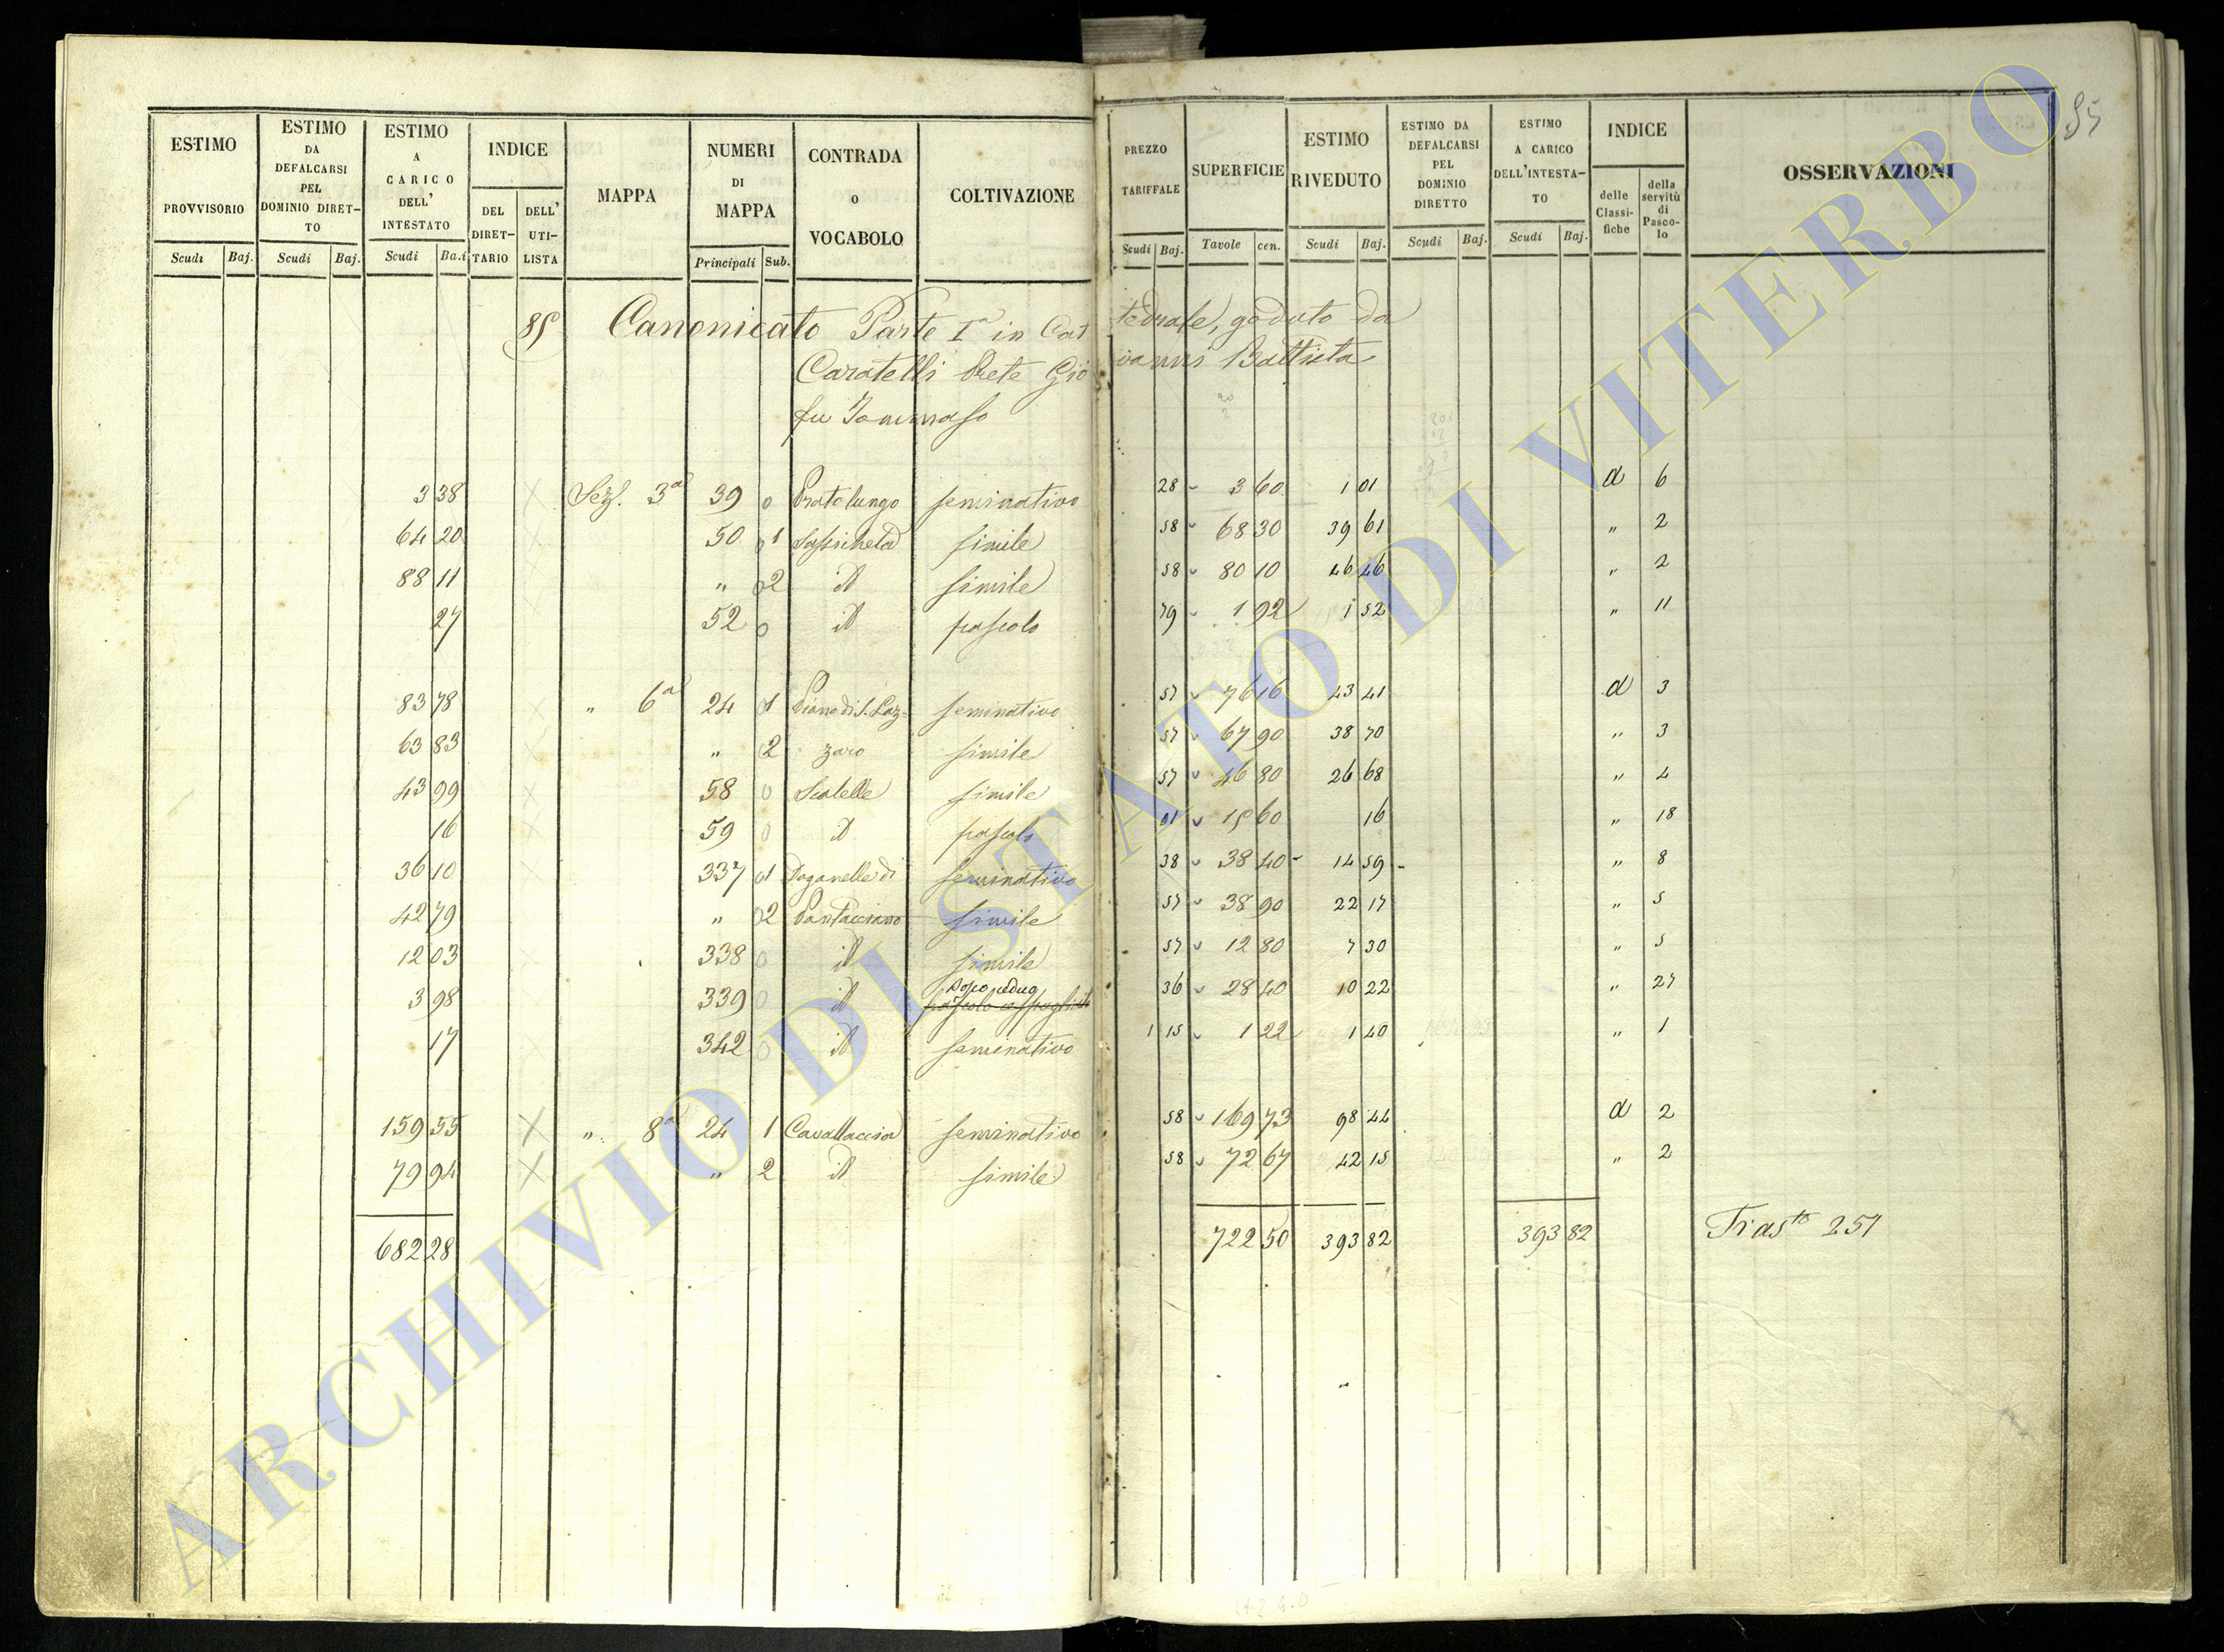 85
ESTIMO PROVVISORIO | ESTIMO DA DEFALCARSI PEL DOMINIO DIRET-TO | ESTIMO A CARICO DELL' INTESTATO | INDICE DEL DIRET-TARIO | DELL' UTI-LISTA | MAPPA | NUMERI DI MAPPA | CONTRADA O VOCABOLO | COLTIVAZIONE | PREZZO TARIFFALE | SUPERFICIE | ESTIMO RIVEDUTO | ESTIMO DA DEFALCARSI PEL DOMINIO DIRETTO | ESTIMO A CARICO DELL'INTESTA-TO | INDICE delle Classi-fiche | della servitù di Pasco-lo | OSSERVAZIONI
Scudi Baj. | Scudi Baj. | Scudi Ba.i | Principali Sub. | Scudi Baj. | Tavole cen. | Scudi Baj. | Scudi Baj. | Scudi Baj.
85 Canonicato Parte Iª in Cattedrale, goduto da
Caratelli Prete Giovanni Battista
fu Tommaso
3 38 Sez. 3ª 39 0 Pratolungo seminativo 28 3 60 1 01 d 6
64 20 50 1 simile 58 68 30 39 61 " 2
88 11 " 2 id simile 58 80 10 46 46 " 2
27 52 0 id pascolo 79 1 92 1 52 " 11
83 78 " 6ª 24 1 Piano di S. Laz= seminativo 57 76 16 43 41 d 3
63 83 " 2 zaro simile 57 67 90 38 70 " 3
43 99 58 0 Scatelle simile 57 46 80 26 68 " 4
16 59 0 id pascolo 01 15 60 16 " 18
36 10 337 1 Poganelle di seminativo 38 38 40 14 59 " 8
42 79 " 2 Pantacciano simile 57 38 90 22 17 " 5
12 03 338 0 id simile 57 12 80 7 30 " 5
3 98 339 0 id pascolo cespugliato 36 28 40 10 22 " 27
17 342 0 id seminativo 1 15 1 22 1 40 " 1
159 55 " 8ª 24 1 Cavallaccia seminativo 58 169 73 98 44 d 2
79 94 " 2 id simile 58 72 67 42 15 " 2
682 28 722 50 393 82 393 82 Trasto 251
ARCHIVIO DI STATO DI VITERBO